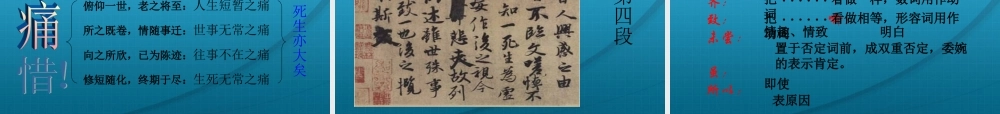 痛
惜!
俯仰一世，老之将至：人生短暂之痛
所之既卷，情随事迁：世事无常之痛
向之所欣，已为陈迹：往事不在之痛
修短随化，终期于尽：生死无常之痛
死生亦大矣
第四段
人兴感之由
不临文嗟悼不
知一死生为虚
妄作后之视今
悲夫故列
述虽世殊事
致一也后之揽
斯文
把······看做一样，数词用作动
把······看做相等，形容词用作
情调、情致
明白
未尝：
置于否定词前，成双重否定，委婉
的表示肯定。
即使
表原因